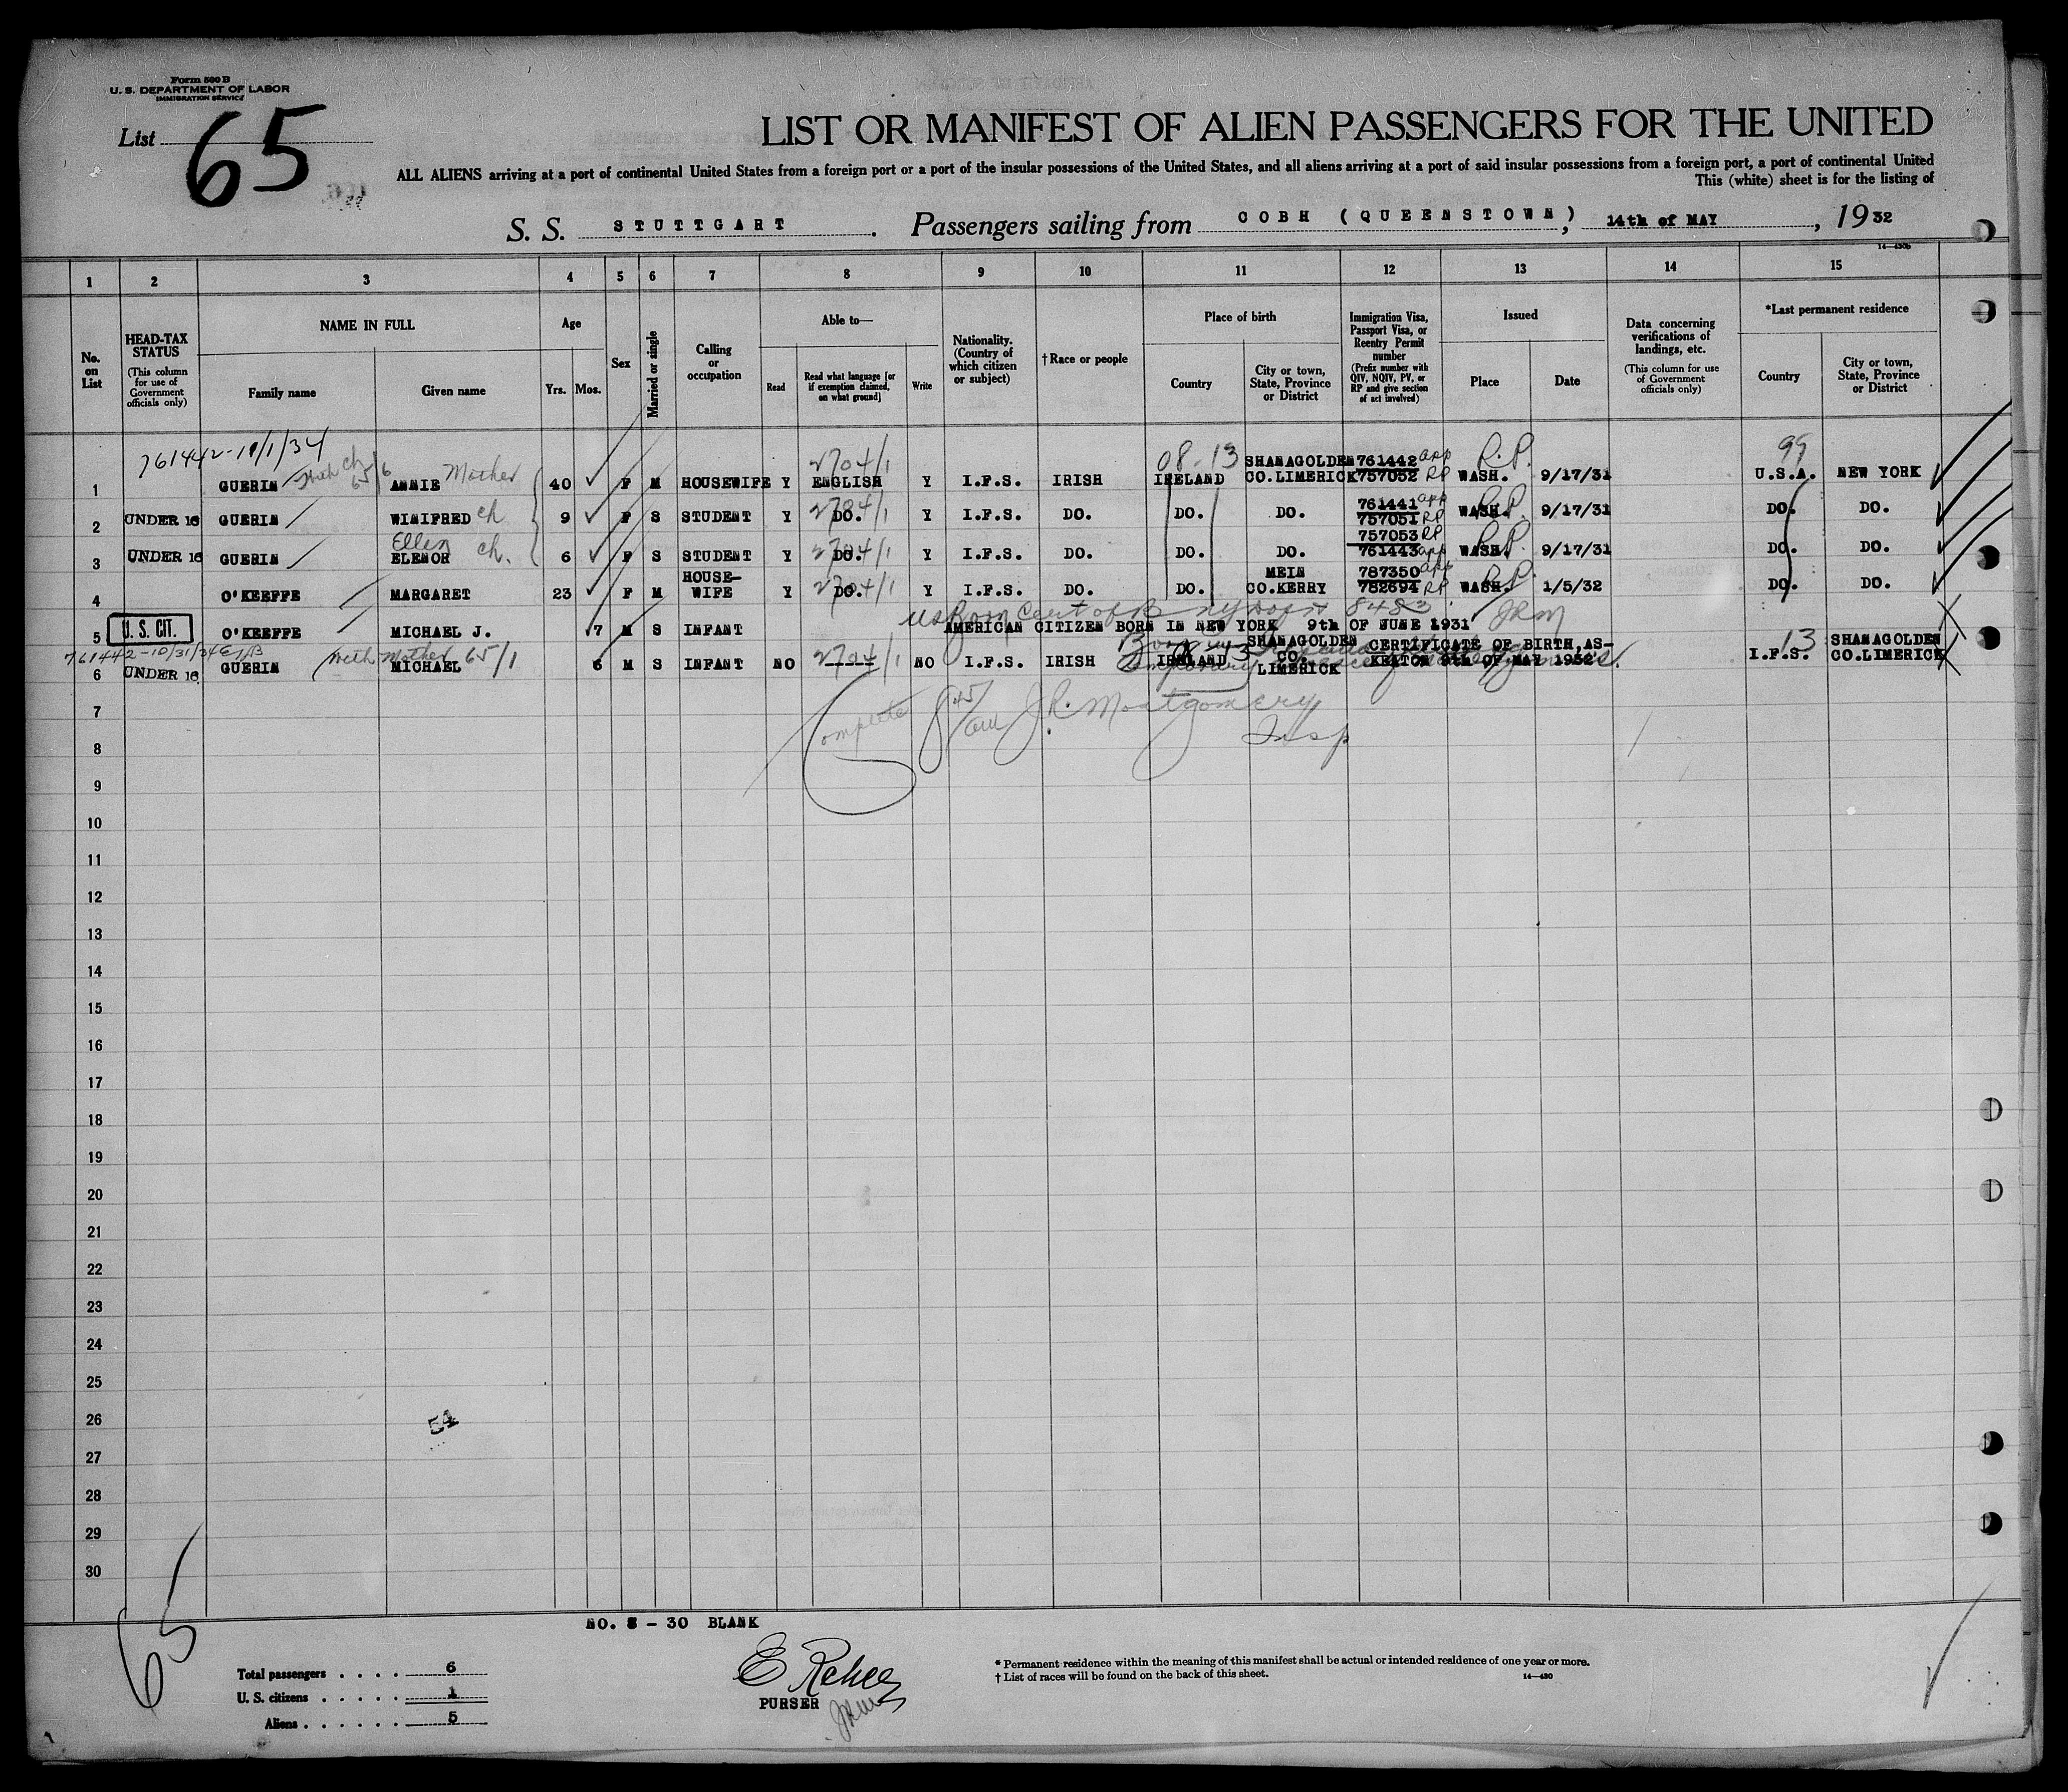 Form 500 B
U. S. DEPARTMENT OF LABOR
IMMIGRATION SERVICE
List 65
LIST OR MANIFEST OF ALIEN PASSENGERS FOR THE UNITED
ALL ALIENS arriving at a port of continental United States from a foreign port or a port of the insular possessions of the United States, and all aliens arriving at a port of said insular possessions from a foreign port, a port of continental United
This (white) sheet is for the listing of
S. S. STUTTGART. Passengers sailing from COBH (QUEENSTOWN), 14th of MAY, 1932
1 2 3 4 5 6 7 8 9 10 11 12 13 14 15
No. on List
HEAD-TAX STATUS (This column for use of Government officials only)
NAME IN FULL
Family name Given name
Age
Yrs. Mos.
Sex
Married or single
Calling or occupation
Able to—
Read Read what language [or if exemption claimed, on what ground] Write
Nationality. (Country of which citizen or subject)
†Race or people
Place of birth
Country City or town, State, Province or District
Immigration Visa, Passport Visa, or Reentry Permit number (Prefix number with QIV, NQIV, PV, or RP and give section of act involved)
Issued
Place Date
Data concerning verifications of landings, etc. (This column for use of Government officials only)
*Last permanent residence
Country City or town, State, Province or District
761442-10/1/34 2704/1 08-13 R.P. 99
1 GUERIN ch 65/6 ANNIE Mother 40 F M HOUSEWIFE Y ENGLISH Y I.F.S. IRISH IRELAND SHANAGOLDEN CO.LIMERICK 761442 app 757052 RP WASH. 9/17/31 U.S.A. NEW YORK
2 UNDER 16 GUERIN WINIFRED ch 9 F S STUDENT Y DO. 2704/1 Y I.F.S. DO. DO. DO. 761441 app 757051 RP WASH. R.P. 9/17/31 DO. DO.
3 UNDER 16 GUERIN Ellen ELENOR ch. 6 F S STUDENT Y DO. 2704/1 Y I.F.S. DO. DO. DO. 757053 RP 761443 app WASH. R.P. 9/17/31 DO. DO.
4 O'KEEFFE MARGARET 23 F M HOUSE-WIFE Y DO. 2704/1 Y I.F.S. DO. DO. MEIN CO.KERRY 787350 app 782694 RP WASH. R.P. 1/5/32 DO. DO.
US Born Cert of B 8483 JRM
5 U. S. CIT. O'KEEFFE MICHAEL J. 7 M S INFANT AMERICAN CITIZEN BORN IN NEW YORK 9th OF JUNE 1931
761442-10/31/34
6 UNDER 16 GUERIN with Mother 65/1 MICHAEL 6 M S INFANT NO 2704/1 NO I.F.S. IRISH IRELAND SHANAGOLDEN CO. LIMERICK CERTIFICATE OF BIRTH,AS-KEATON 9th OF MAY 1932 13 I.F.S. SHANAGOLDEN CO.LIMERICK
Complete 8 45/am J.R. Montgomery
Insp
7
8
9
10
11
12
13
14
15
16
17
18
19
20
21
22
23
24
25
26
54
27
28
29
30
NO. 8 - 30 BLANK
65
Total passengers . . . . 6
U. S. citizens . . . . . 1
Aliens . . . . . . 5
PURSER
JRM
* Permanent residence within the meaning of this manifest shall be actual or intended residence of one year or more.
† List of races will be found on the back of this sheet.
14—430